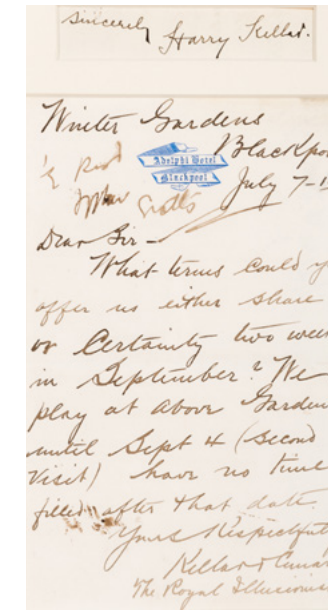 Sincerely Harry Kellar.
Winter Gardens
Blackpo
Adelphi Hotel
Blackpool
July 7-1
Dear Sir -
What terms could y
offer us either share
or Certainty two week
in September? We
play at above Garden
until Sept 4 (Second
Visit) have no time
filled after that date.
Yours Respectful
Kellar &
The Royal Illusionis